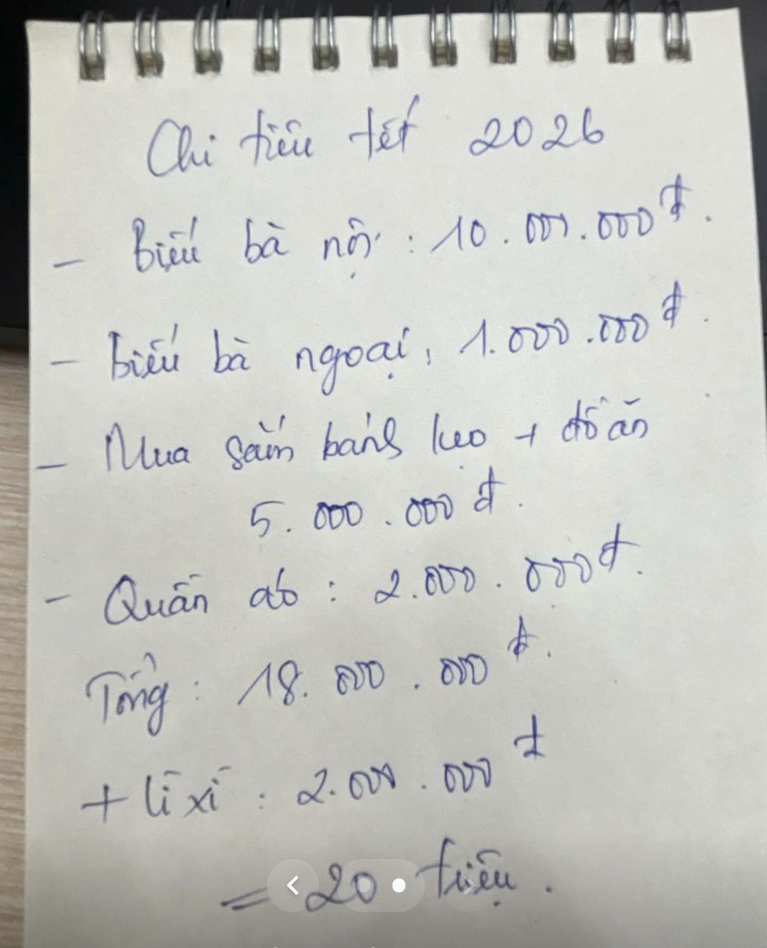 Chi tiêu tết 2026
- Biếu bà nội : 10.000.000đ.
- biếu bà ngoại, 1.000.000đ.
- Mua sắm bánh kẹo + đồ ăn
5.000.000đ.
- Quần áo : 2.000.000đ.
Tổng : 18.000.000đ.
+ lì xì : 2.000.000đ
= 20 triệu.